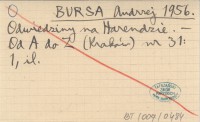 BURSA Andrzej 1956.
Odwiedziny na Harendzie. —
Od A do Z (Kraków) nr 31:
1, il.
BT 1009 / 0484